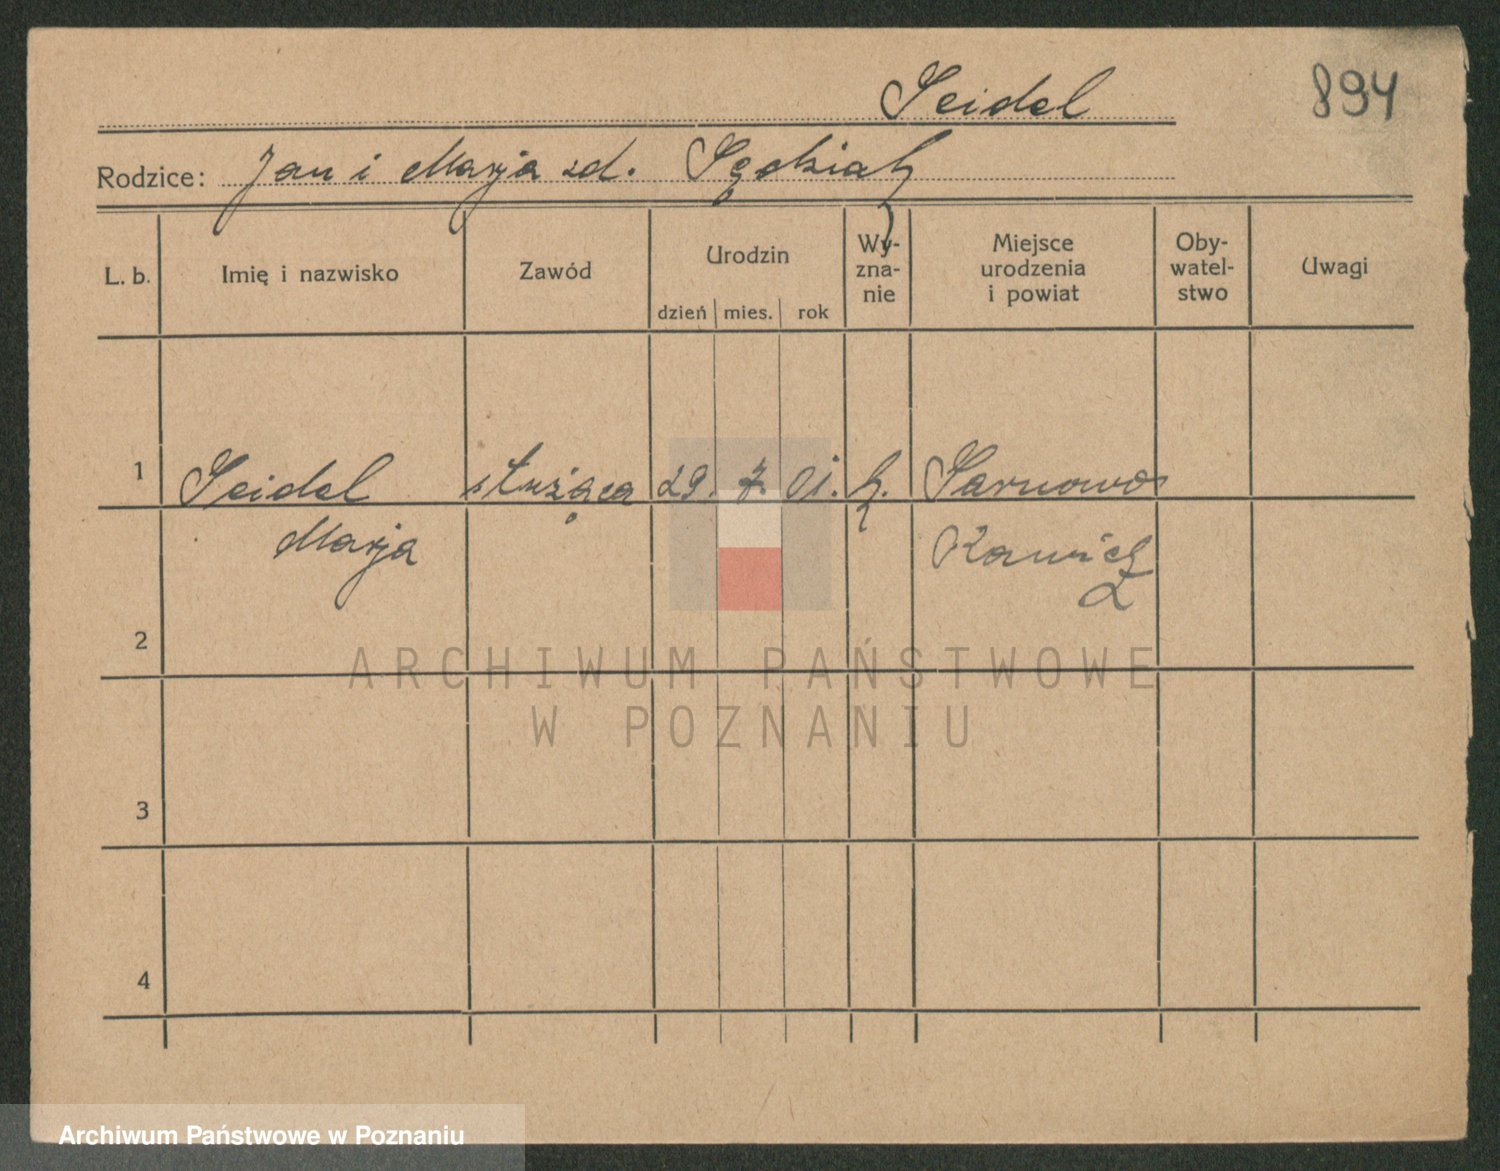 Seidel
894
Rodzice: Jan i Marja zd. Sędziak
L. b. Imię i nazwisko Zawód Urodzin dzień mies. rok Wy-zna-nie Miejsce urodzenia i powiat Oby-watel-stwo Uwagi
1 Seidel służąca 29. 7. 01. k. Sarnowo
Marja Rawicz
2
ARCHIWUM PAŃSTWOWE
W POZNANIU
3
4
Archiwum Państwowe w Poznaniu